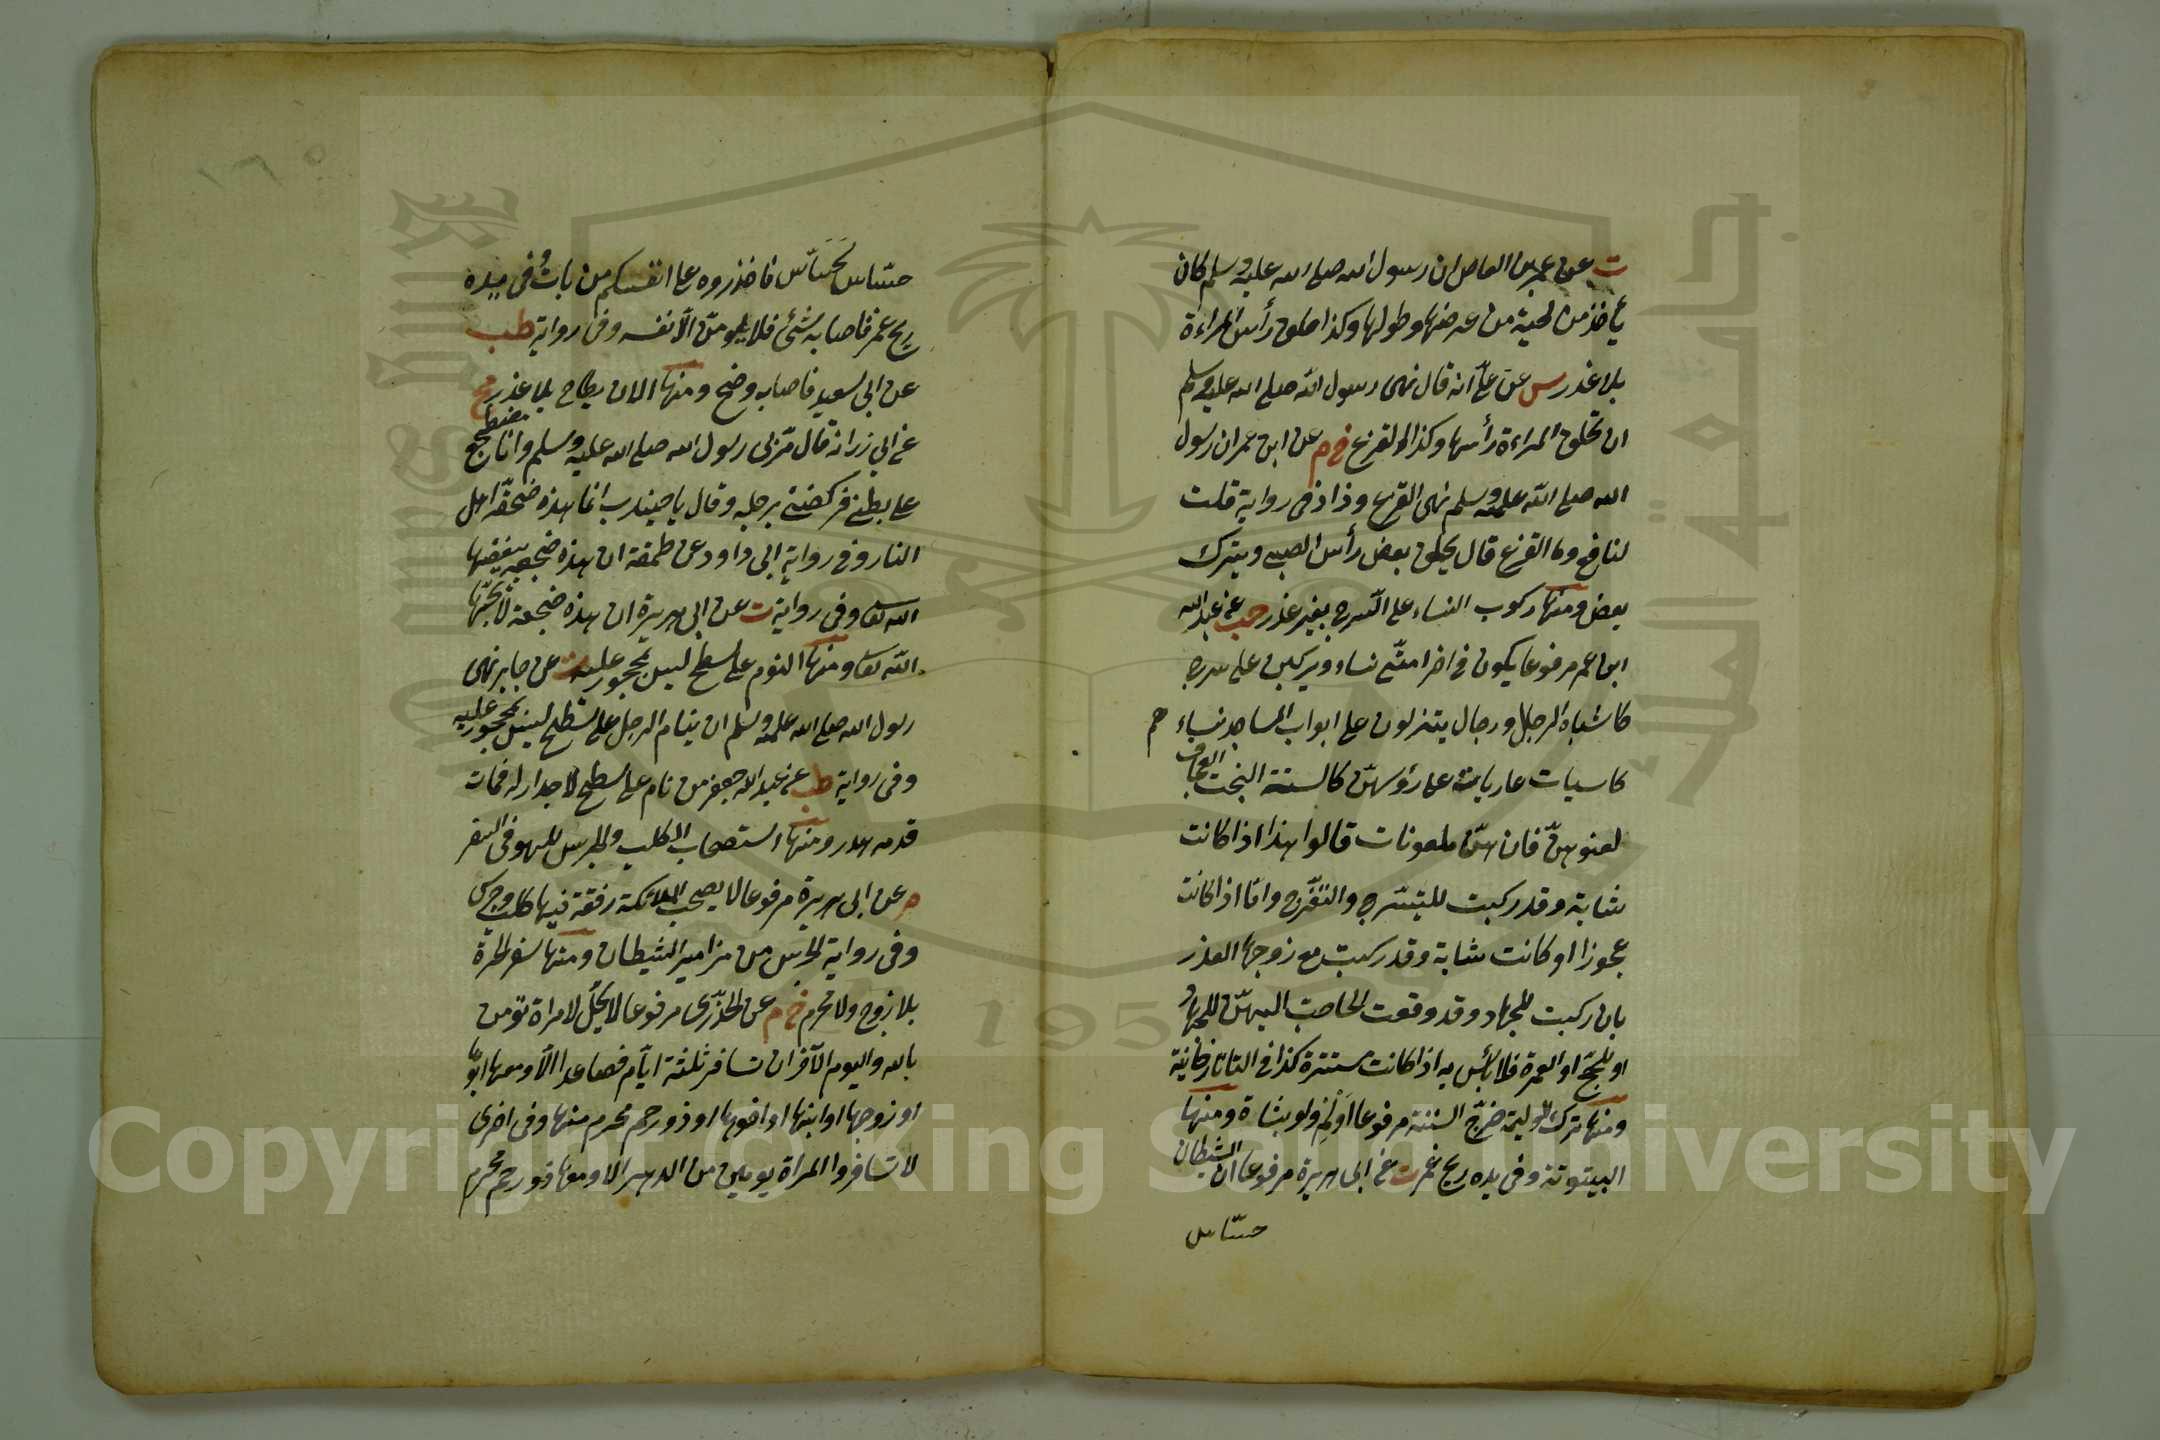 ت عن عمر بن العاص ان رسول الله صلى الله عليه وسلم كان
يأخذ من لحيته من عرضها وطولها وكذا حلق رأس المراءة
بلا عذر س عن علىّ انه قال نهى رسول الله صلى الله عليه وسلم
ان تحلق المراءة رأسها وكذا القزع خ م عن ابن عمر ان رسول
الله صلى الله عليه وسلم نهى القزع وزاد فى رواية قلت
لنافع وما القزع قال يحلق بعض رأس الصبى ويترك
بعض ومنها ركوب النساء على السّرج بغير عذر حب عن عبدالله
ابن عمر مرفوعا يكون فى اخر امتى نساء ويركبن على سرج
كاشباه الرجال ورجال ينزلون على ابواب المساجد نساءهم
كاسيات عاريات على رؤسهنّ كاسنمة البخت العجاف
لعنوهنّ فان هنّ ملعونات قالوا هذا اذا كانت
شابة وقد ركبت للتسّرج والتفّرج وامّا اذا كانت
عجوزا او كانت شابة وقد ركبت مع زوجها العذر
بان ركبت للجهاد وقد وقعت الحاجت اليهنّ للجهاد
او للحج او العمرة فلا بأس به اذا كانت مستترة كذا فى التاتارخانية
ومنها ترك الوليمة خرّج الستة مرفوعا اَوْلِم ولو بشاة ومنها
البيتوتة وفى يده ريح غمر ت عن ابى هريرة مرفوعا ان الشيطان
حسّاس
حسّاس لَحَسّاس فاحذروه على انفسكم من بات وفى يده
ريح غمر فاصابه شئ فلا يلومنّ الّا نفسه وفى رواية طب
عن ابى سعيد فاصابه وضح ومنها بلا عذر مج
عن ابى ذر انه قال مرّ بى رسول الله صلى الله عليه وسلم وانا مضطجع
على بطنى فركضنى برجله وقال يا جنيدب انما هذه ضجعة اهل
النار وفى رواية ابى داود عن طخفة ان هذه ضجعة يبغضها
الله تعا وفى رواية ت عن ابى هريرة ان هذه ضجعة لا يحبّها
الله تعا ومنها النوم على سطح ليس بمحجور عليه ت عن جابر نهى
رسول الله صلى الله عليه وسلم ان ينام الرجل على سطح ليس بمحجور عليه
وفى رواية طب عن عبدالله جعفر من نام على سطح لا جدار له فمات
فدمه هدر ومنها استصحاب الكلب والجرس للهو فى السفر
م عن ابى هريرة مرفوعا لا يصحب الملائكة رفقة فيها كلب وجرس
وفى رواية الجرس من مزامير الشيطان ومنها سفر الحرّة
بلا زوج ولا محرم خ م عن الخذرّى مرفوعا لا يحلّ لامراة تؤمن
بالله واليوم الآخر ان تسافر ثلثة ايّام فصاعدا الّا ومعها ابوها
او زوجها او ابنها او اخوها او ذو رحم محرم منها وفى اخرى
لا تسافروا المراة يومين من الدهر الا ومعها ذو رحم محرم
Copyright © King Saud University
1957